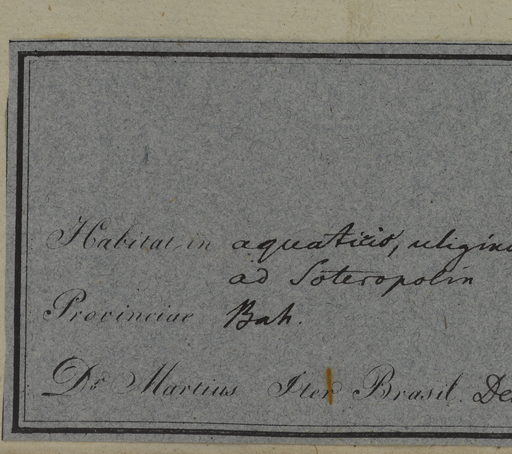 Habitat in aquaticis, uligino
ad Soteropolin
Provinciae Bah.
Dr. Martius Iter Brasil. De